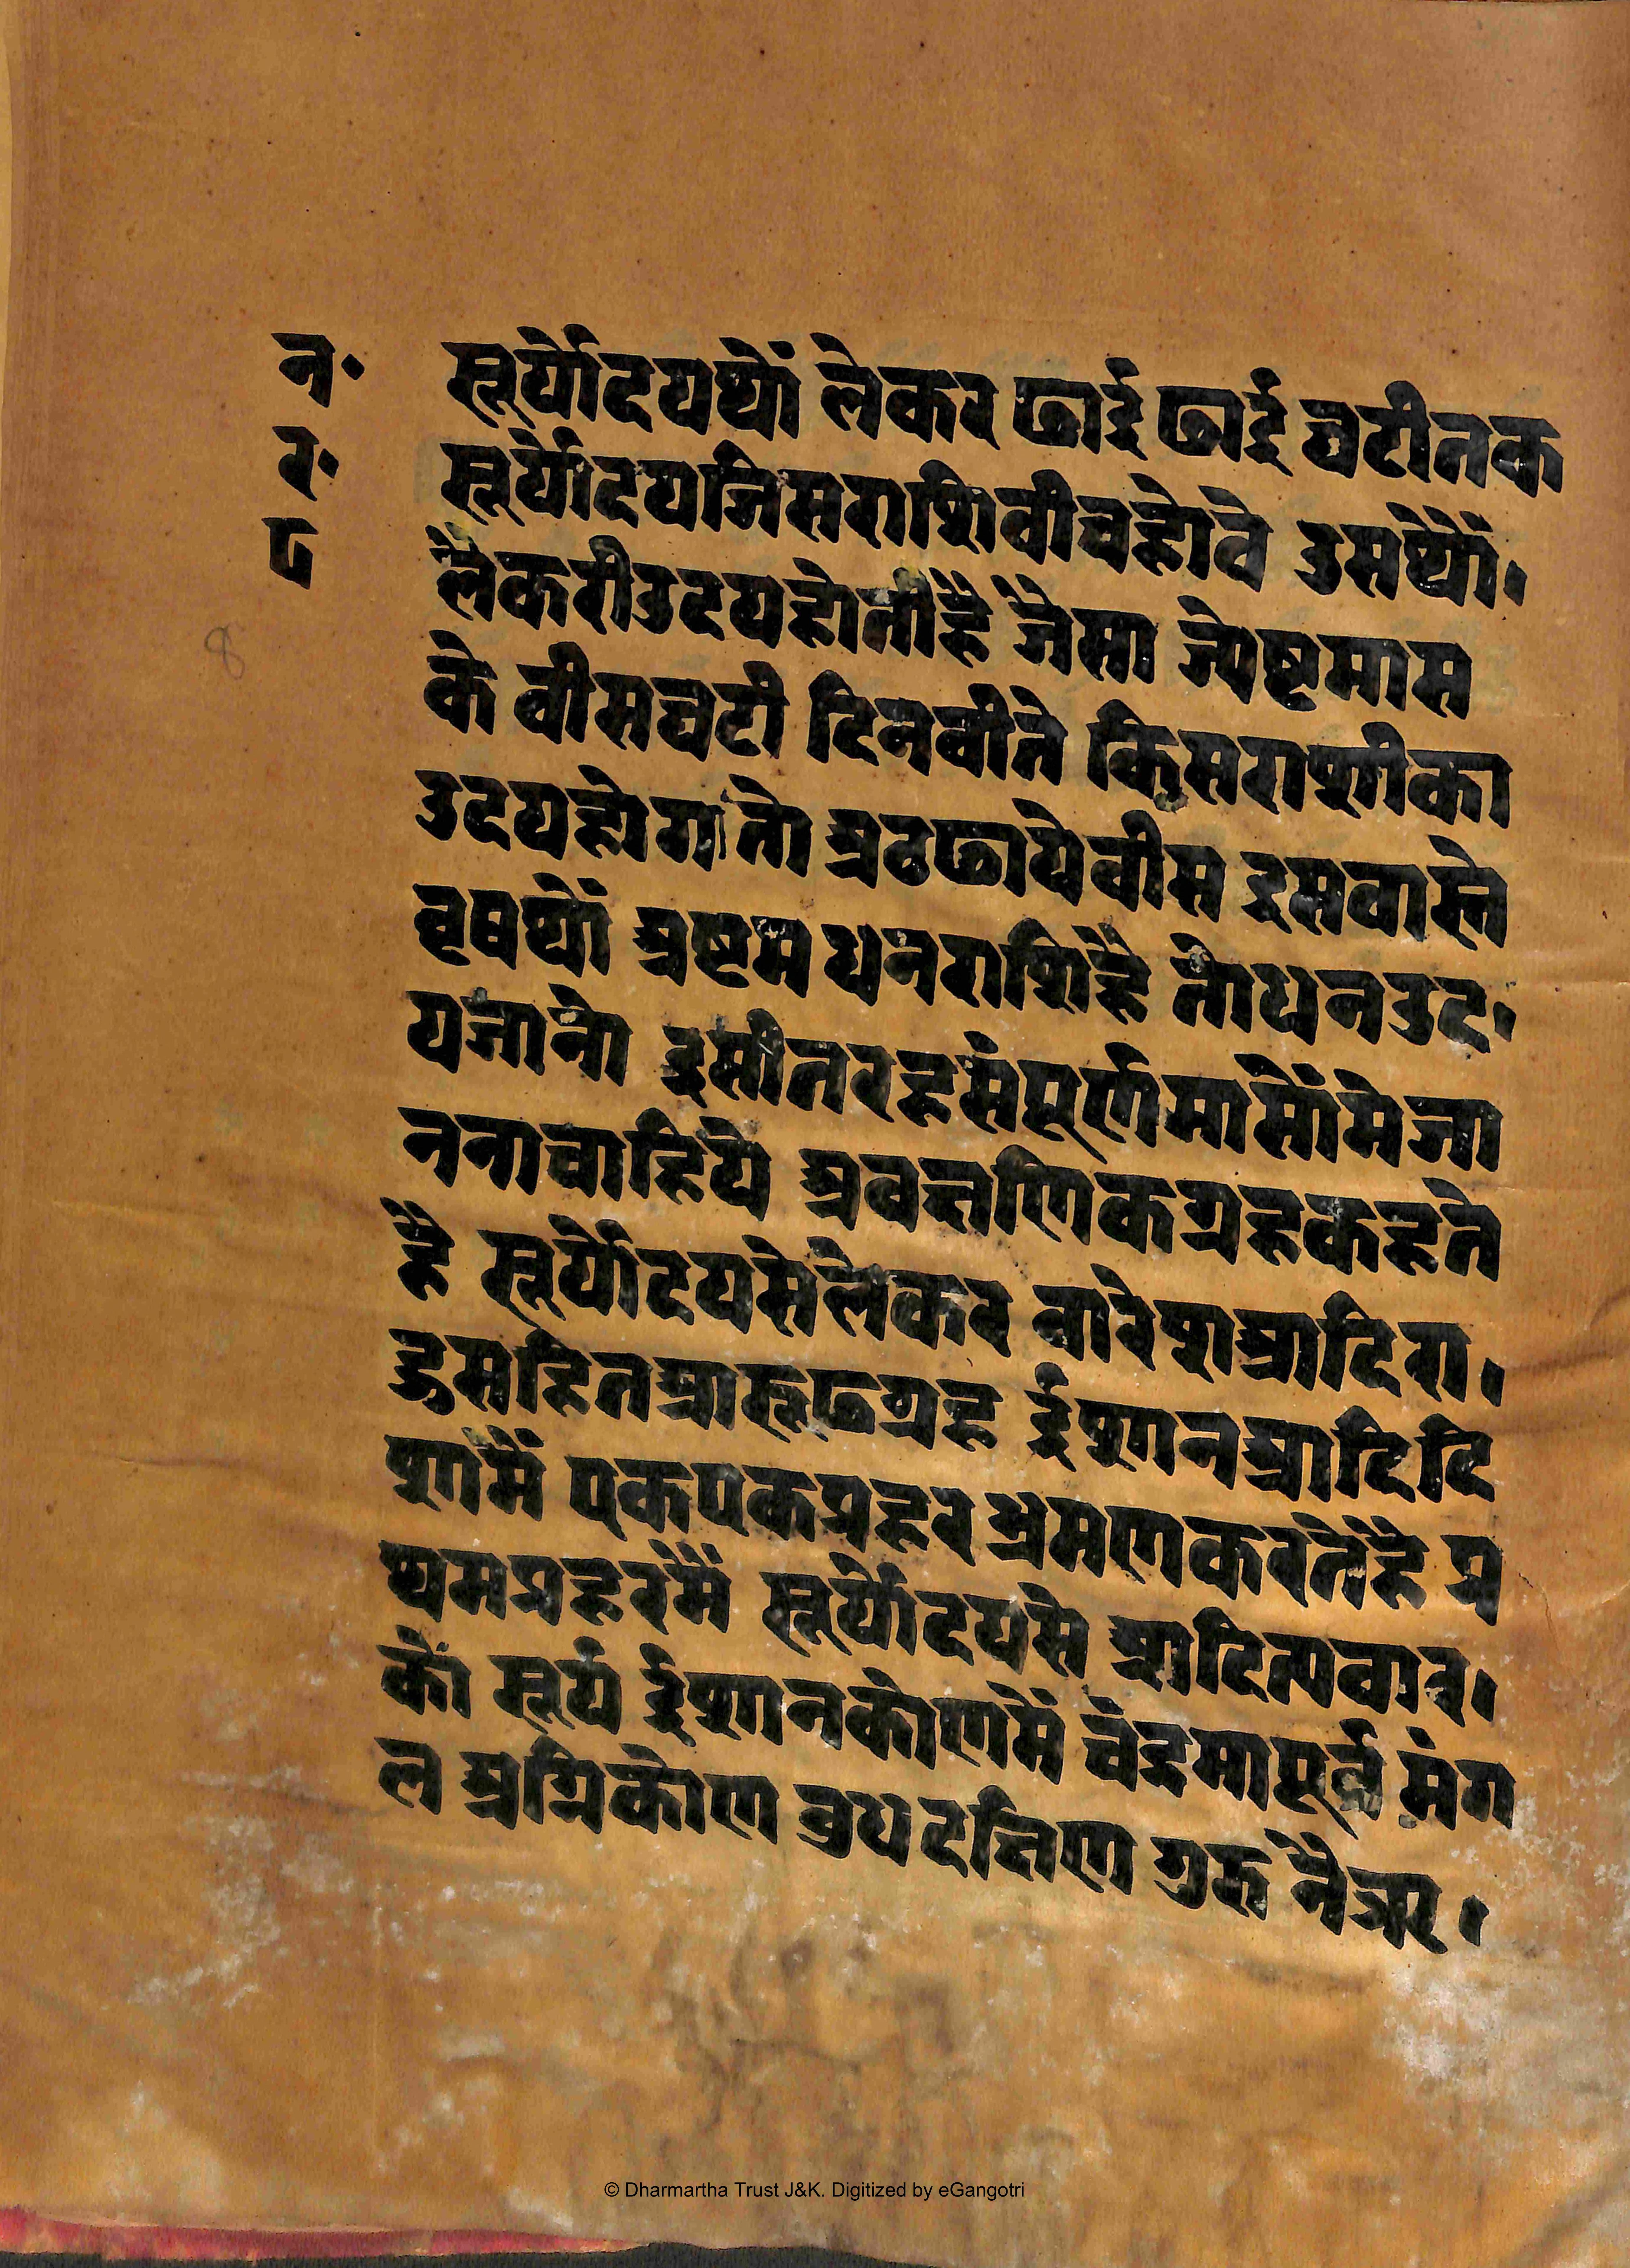 न॰
र॰
८
8
सूर्योदयथों लेकर ढाई ढाई घटीतक
सूर्योदयजिसराशिवीचहोवे उसथों।
लैकरीउदयहोतीहै जैसा ज्येष्टमास
के वीसघटी दिनवीते किसराशीका
उदयहोगा तो अठढायेवीस इसवास्ते
वृषथों अष्टम धनराशिहै तोधनउद।
यजानो इसीतरहसंपूर्णमासोंमेजा
ननाचाहिये अवक्षणिकग्रहकहते
है सूर्योदयसेलेकर वारेशआदिरा।
हुसहितआरूढग्रह ईशानआदिदि
शामें एकएकप्रहर भ्रमणकरतेहै प्र
थमप्रहरमैं सूर्योदयसे आदित्यवार।
कों सूर्य ईशानकोणमें चंद्रमापूर्व मंग
ल अग्निकोण बुध दक्षिण गुरु नैऋ।
© Dharmartha Trust J&K. Digitized by eGangotri